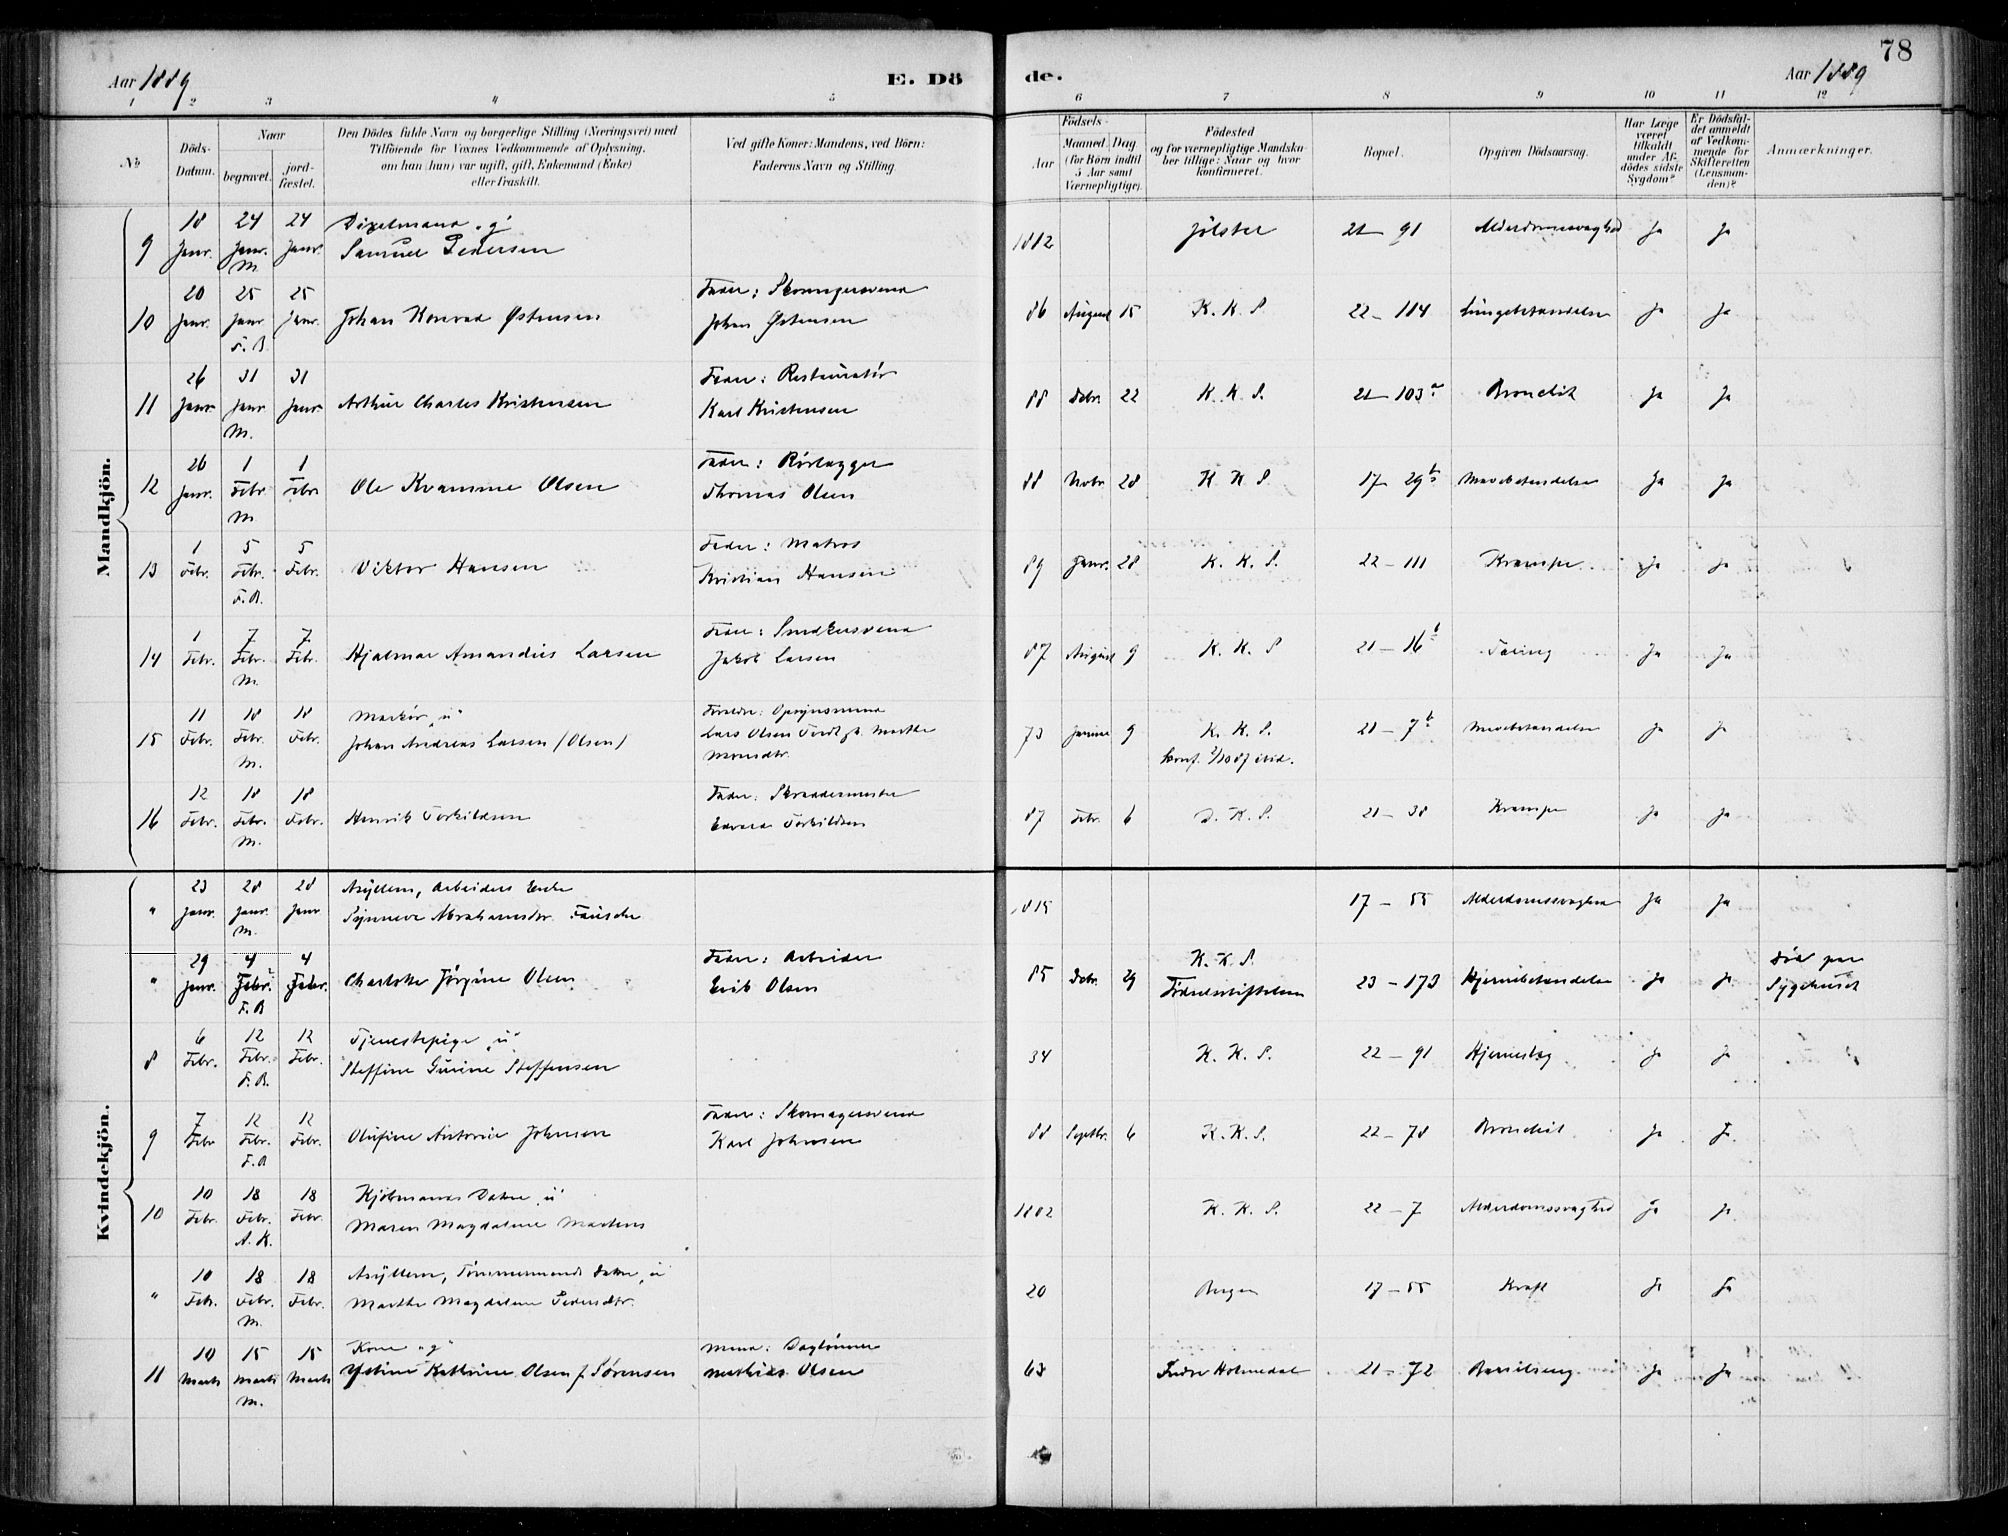 78
Aar 1889 E. Dö de. Aar 1889
1 2 3 4 5 6 7 8 9 10 11 12
No
Döds-Datum.
Naar
begravet.
jord-fæstet.
Den Dödes fulde Navn og borgerlige Stilling (Næringsvei) med
Tilföiende for Voxnes Vedkommende af Oplysning,
om han (hun) var ugift, gift, Enkemand (Enke)
eller fraskilt.
Ved gifte Koner: Mandens, ved Börn:
Faderens Navn og Stilling.
Födsels-
Aar
Maaned Dag
(for Börn indtil
5 Aar samt
Værnepligtige).
Födested
og for værnepligtige Mandska-
ber tillige: Naar og hvor
konfirmeret.
Bopæl.
Opgiven Dödsaarsag.
Har Læge
været
tilkaldt
under Af-
dödes sidste
Sygdom?
Er Dödsfal-
det anmeldt
af Vedkom-
mende for
Skifteretten
(Lensman-
den)?
Anmærkninger.
Mandkjön.
9 18 Janr. 24 Janr. M 24 Janr. "g" Samuel Pedersen 1812 Jølster 21-91 Alderdomssvaghed Ja Ja
10 20 Janr. 25 Janr F.B. 25 Janr. Johan Konrad Østensen Fader: Skomagersvend Johan Østensen 86 August 15 K. K. S 22-114 Lungebetændelse Ja Ja
11 26 Janr. 31 Janr M. 31 Janr. Arthur Charles Kristensen Fader: Restauratør Karl Kristensen 88 Debr. 22 K. K. S. 21-103a Bronchit Ja Ja
12 26 Janr. 1 Febr M 1 Febr Ole Kvamme Olsen Fader: Rørlægger Thomas Olsen 88 Novbr. 28 K K S 17-29b Mavebetændelse Ja Ja
13 1 Febr. 5 Febr. F.B. 5 Febr. Viktor Hansen Fader: Matros Kristian Hansen 89 Janr. 28 K. K. S. 22-111 Krampe Ja Ja
14 1 Febr. 7 Febr. M. 7 Febr. Hjalmar Amandus Larsen Fader: Snedkersvend Jakob Larsen 87 August 9 K. K. S 21-16b Tæring Ja Ja
15 11 Febr. 18 Febr. M. 18 Febr. Markør "u" Johan Andreas Larsen (Olsen) Forældre: Opsynsmand Lars Olsen Marthe Monsdtr. 73 Januar 9 K. K. S. konf. 2/10 87 ibid. 21-7b Mavebetændelse Ja Ja
16 12 Febr. 18 Febr. M. 18 Febr. Henrik Torkildsen Fader: Skræddermester Edvard Torkildsen 87 Febr. 6 D. K. S. 21-38 Krampe Ja Ja
Kvindekjön.
" 23 Janr. 28 Janr. M. 28 Janr Asyllem, Arbeiders Enke Synneve Abrahamsdtr. 1815 17-55 Alderdomssvaghed Ja Ja
" 29 Janr. 4 Febr. F.B 4 Febr. Charlotte Jørgine Olsen Fader: Arbeider Erik Olsen 85 Debr. 29 K. K. S. Fødselsstiftelsen 23-173 Hjernebetændelse Ja Ja Død paa Sygehuset
8 6 Febr. 12 Febr. F.B. 12 Febr. Tjenestepige "u" Steffine Gurine Steffensen 34 K. K. S. 22-91 Hjerneslag Ja Ja
9 7 Febr 12 Febr. F.B 12 Febr. Olufine Antonie Johnsen Fader: Skomagersvend Karl Johnsen 88 Septbr. 6 K. K. S. 22-78 Bronchit Ja Ja
10 10 Febr. 18 Febr. A. K. 18 Febr. Kjøbmands Datter "u" Maren Magdalene Martens 1802 K. K. S. 22-7 Alderdomssvaghed Ja Ja
" 10 Febr. 18 Febr. M. 18 Febr. Asyllem, Tømmermands Datter "u" Marthe Magdalene Pedersdtr. 20 Bergen 17-55 Kræft Ja Ja
11 10 Marts 15 Marts M. 15 Marts Kone "g" Kathrine Olsen f. Sørensen Mand: Daglønner Mathias Olsen 63 Indre Holmedal 21-72 Barselseng Ja Ja